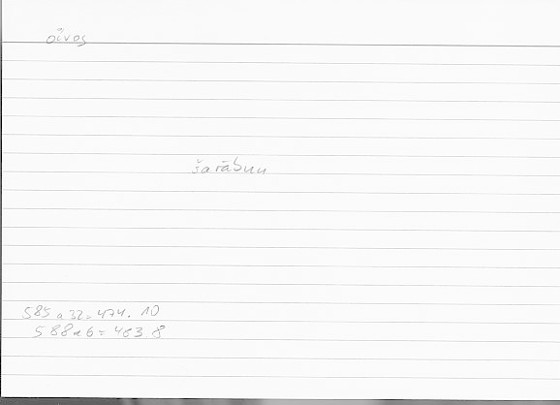 οἶνος
šarābun
585 a 32 = 474. 10
588 a 6 = 483. 8